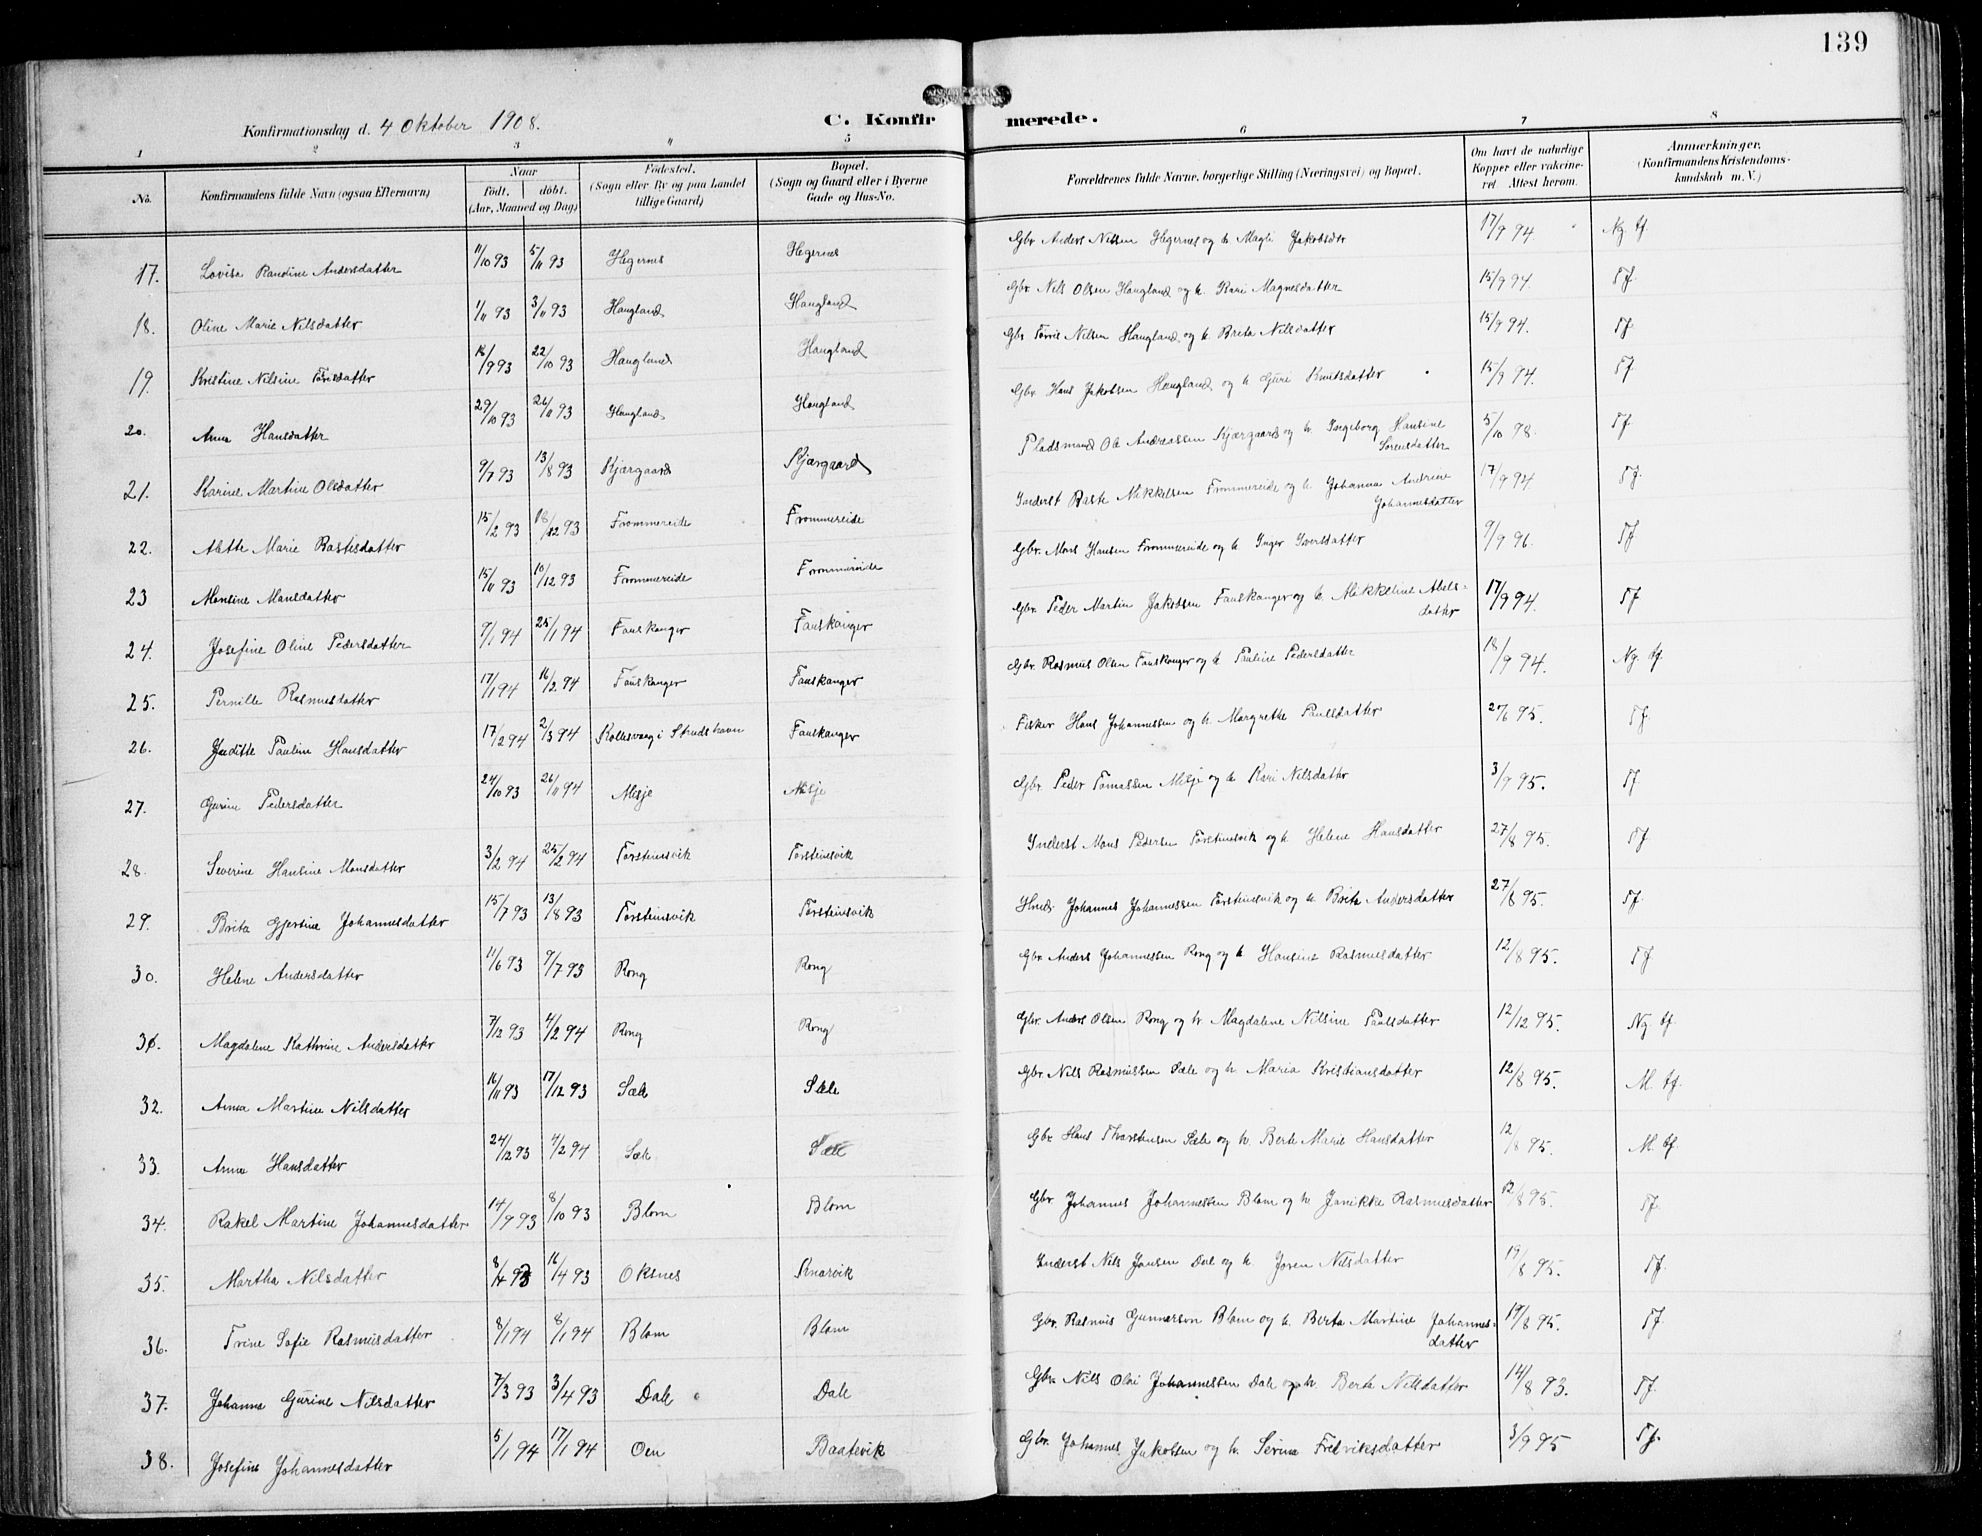 139
Konfirmationsdag d. 4 Oktober 1908.
C. Konfirmerede.
1 2 3 4 5 6 7 8
No. Konfirmandens fulde Navn (ogsaa Efternavn) Naar født, døbt. (Aar, Maaned og Dag) Fødested. (Sogn eller By og paa Landet tillige Gaard) Bopæl. (Sogn og Gaard eller i Byerne Gade og Hus-No. Forældrenes fulde Navne, borgerlige Stilling (Næringsvei) og Bopæl. Om havt de naturlige Kopper eller vakcineret. Attest herom. Anmærkninger. (Konfirmandens Kristendomskundskab m. V.)
17. Lovisa Randine Andersdatter 11/10 93 5/11 93 Hegernes Hegernes Gbr Anders Nilsen Hegernes og h. Magli Jakobsdtr 17/9 94. Ng. tf.
18. Oline Marie Nilsdatter 1/11 93 3/11 93 Haugland Haugland Gbr. Nils Olsen Haugland og h. Kari Magnesdatter 15/9 94. Tf.
19. Kristine Nilsine Torisdatter 18/9 93 22/10 93 Haugland Haugland Gbr Torris Nilsen Haugland og h Brita Nilsdatter 15/9 94. Tf
20. Anna Hansdatter 29/10 93 26/11 93 Haugland Haugland Gbr. Hans Jakobsen Haugland og h Guri Knutsdatter 15/9 94. Tf
21. Karine Martine Olsdatter 9/7 93 13/8 93 Kjærgaard Kjærgaard Pladsmand Ole Andreassen Kjærgaard og h. Ingeborg Hansine Sorensdatter 5/10 98. Tf
22. Alette Marie Rastisdatter 15/2 93 18/12 93 Frommereide Frommereide Inderst Raste Mikkelsen Frommereide og h Johanna Andrine Johannesdatter 17/9 94 Tf.
23 Monsine Monsdatter 15/11 93 10/12 93 Frommereide Frommereide Gbr. Mons Hansen Frommereide og h Inger Iversdatter 9/9 96. Tf
24. Josefine Oline Pedersdatter 9/1 94 25/1 94 Fauskanger Fauskanger Gbr. Peder Martin Jakobsen Fauskanger og h. Mikkeline Abelsdatter 17/9 94. Tf
25. Pernille Rasmusdatter 17/1 94 16/2 94 Fauskanger Fauskanger Gbr Rasmus Olsen Fauskanger og h Pauline Pedersdatter 18/9 94. Ng. tf.
26. Juditte Pauline Hansdatter 17/2 94 2/3 94 Kollesvaag i Strudshavn Fauskanger Fisker Hans Johannessen og h. Margrette Paulsdatter 27/6 95. Tf
27. Gurine Pedersdatter 24/10 93 26/11 94 Misje Misje Gbr Peder Tomassen Misje og h Kari Nilsdatter 3/9 95. Tf
28. Severine Hansine Monsdatter 3/2 94 25/2 94 Torsteinsvik Torsteinsvik Inderst Mons Pedersen Torsteinsvik og h Helene Hansdatter 27/8 95. Tf
29. Brita Gjertine Johannesdatter 15/7 93 13/8 93 Torsteinsvik Torsteinsvik Johannes Johannessen Torsteinsvik og h. Brite Andersdatter 27/8 95. Tf.
30. Helene Andersdatter 11/6 93 9/7 93 Rong Rong Gbr Anders Johannessen Rong og h Hansine Rasmusdatter 12/8 95. Tf
31. Magdalene Kathrine Andersdatter 7/12 93 4/2 94 Rong Rong Gbr. Anders Olsen Rong og h Magdalene Nilsine Paulsdatter 12/12 95. Ng. tf.
32. Anna Martine Nilsdatter 16/11 93 17/12 93 Sæle Sæle Gbr Nils Rasmussen Sæle og h Maria Kristiansdatter 12/8 95. M. tf.
33. Anna Hansdatter 24/12 93 4/2 94 Sæle Sæle Gbr Hans Thorstensen Sæle og h. Berte Marie Hansdatter 12/8 95. M. tf
34. Rakel Martine Johannesdatter 14/9 93 8/10 93 Blom Blom Gbr Johannes Johannessen Blom og h. Janikke Rasmusdatter 12/8 95. Tf.
35. Martha Nilsdatter 8/4 93 16/4 93 Oksnes Knarvik Inderst Nils Jansen Dale og h. Joren Nilsdatter 19/8 95. Tf.
36. Trine Sofie Rasmusdatter 8/1 94 8/1 94 Blom Blom Gbr. Rasmus Gunnarson Blom og h. Berta Martine Johannesdatter 19/8 95. Tf
37. Johanna Gurine Nilsdatter 7/3 93 3/4 93 Dale Dale Gbr. Nils Olai Johannessen Dale og h. Berte Nilsdatter 14/8 93. Tf.
38. Josefine Johannesdatter 5/1 94 17/1 94 Oen Baatevik Gbr. Johannes Jakobsen og h. Serina Fredriksdatter 3/9 95 Tf.